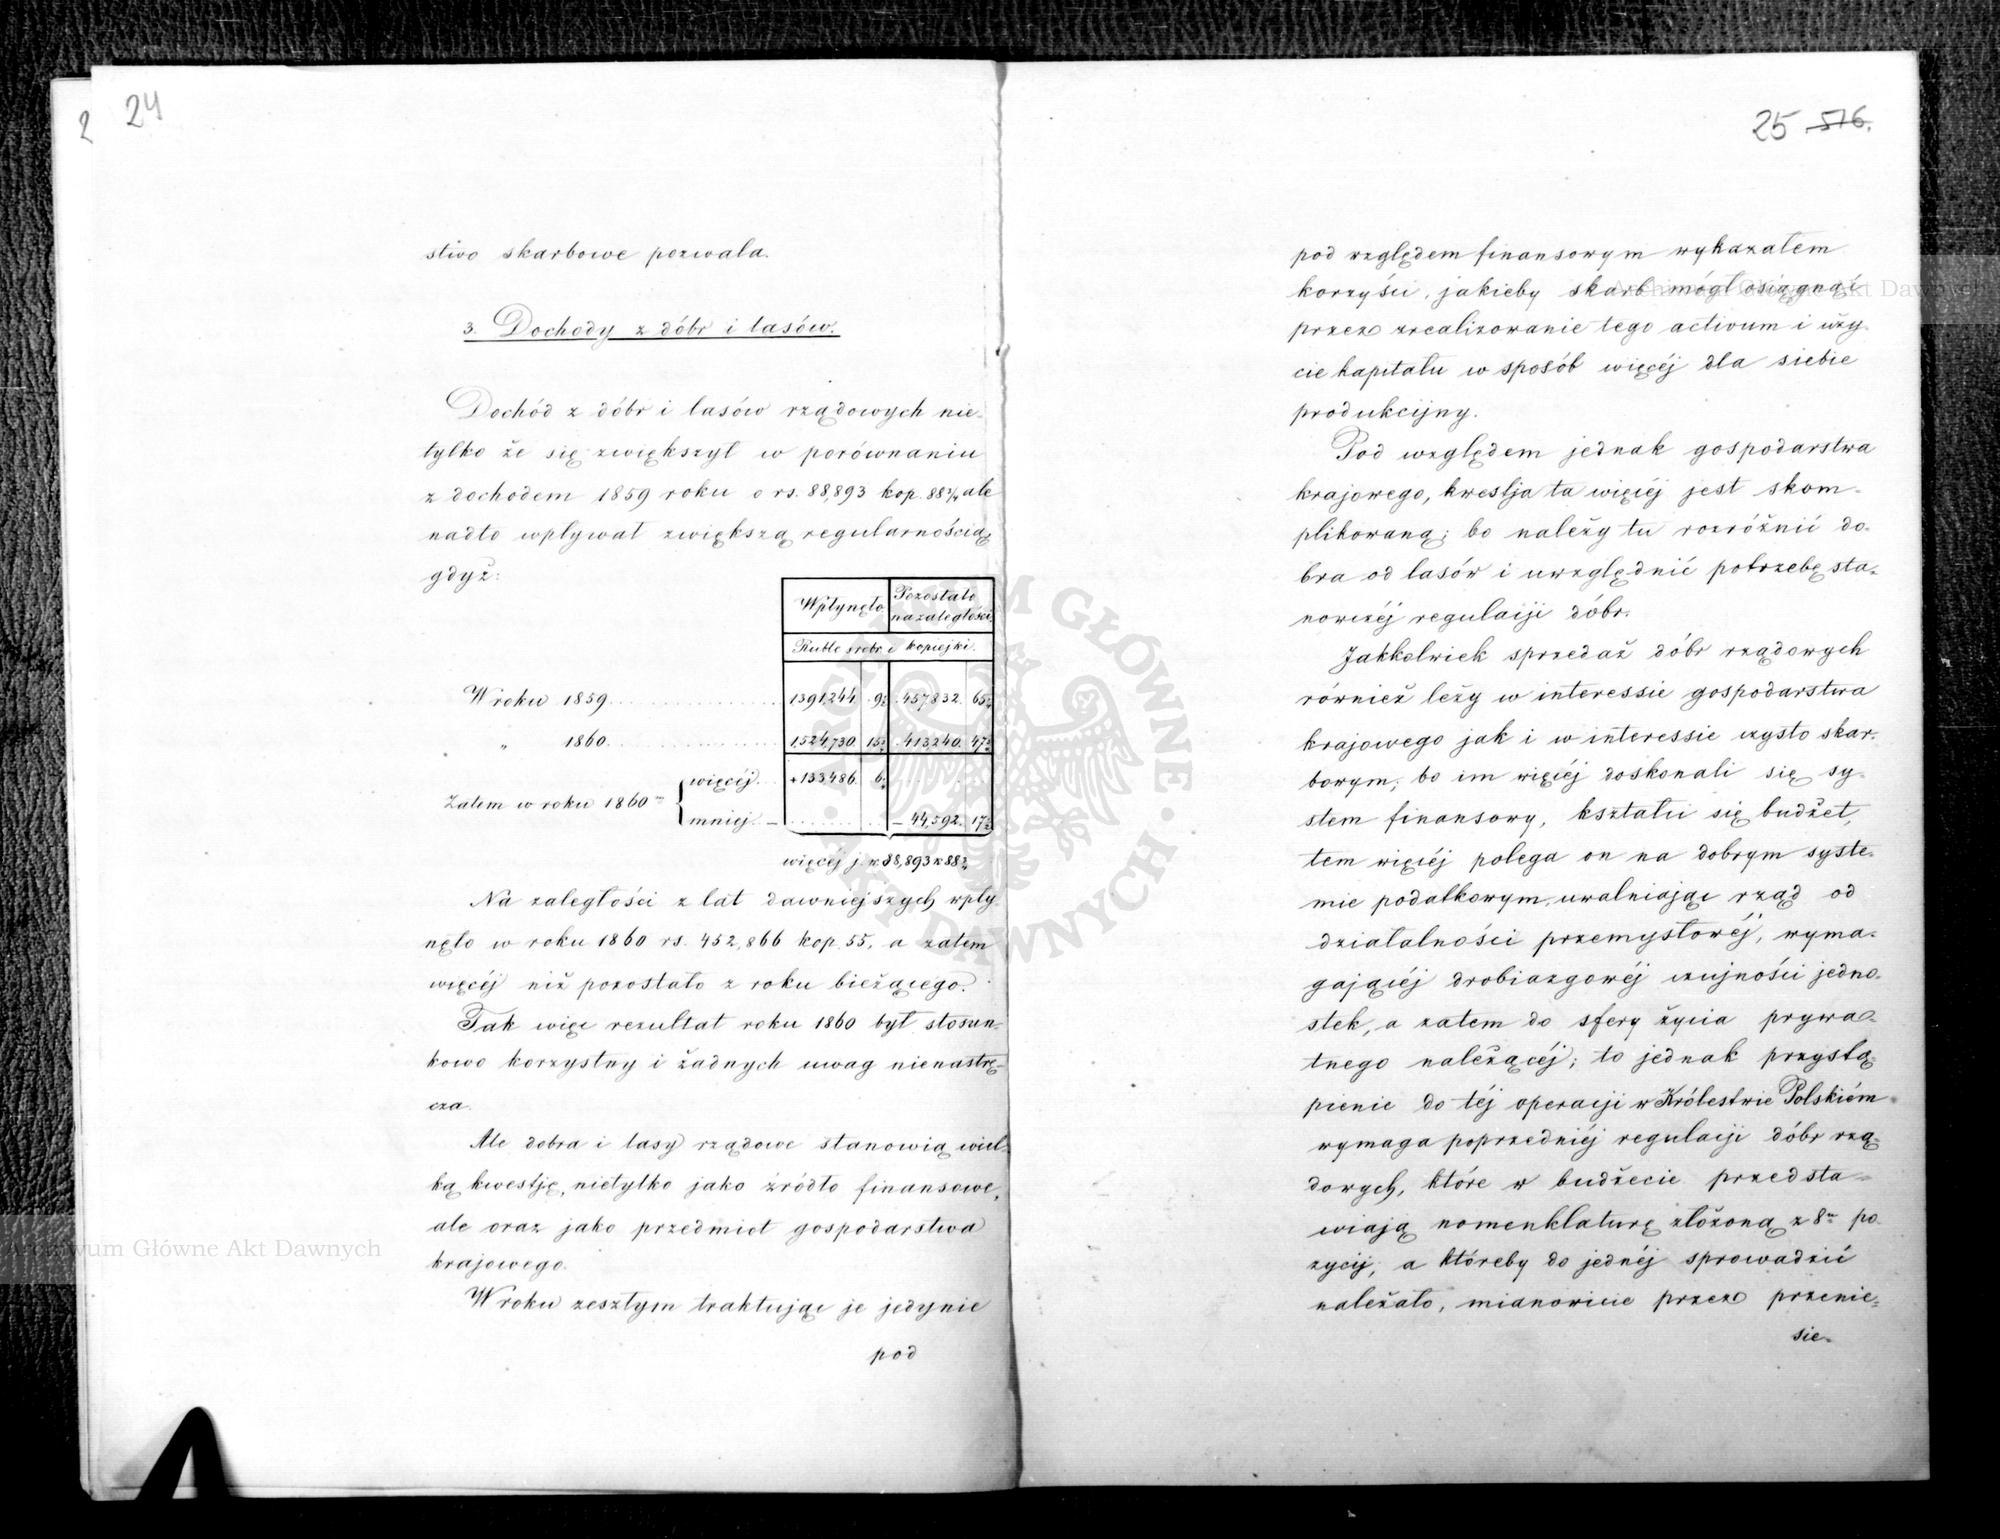 2 24
stwo skarbowe pozwala.
3. Dochody z dóbr i lasów.
Dochód z dóbr i lasów rządowych nie-
tylko że się zwiększył w porównaniu
z dochodem 1859 roku o rs. 88,893 kop. 88¾ ale
nadto wpływał zwiększą regularnością,
gdyż:
Wpłynęło Pozostało
na zaległości
Ruble srebr. i kopiejki.
W roku 1859 1391,244. 457,832. 65
„ 1860. 1,524,730. 15 413,240. 47
Zatem w roku 1860 więcéj +133486. 6
mniej – – 44,592. 17
więcéj 88,893 k 88
Na zaległości z lat dawniejszych wpły-
nęło w roku 1860 rs. 452,866 kop. 55, a zatem
więcéj niż pozostało z roku bieżącego.
Tak więc rezultat roku 1860 był stosun-
kowo korzystny i żadnych uwag nienastrę-
cza.
Ale dobra i lasy rządowe stanowią wiel-
ką kwestję, nietylko jako źródło finansowe,
ale oraz jako przedmiot gospodarstwa
krajowego.
W roku zeszłym traktując je jedynie
pod
25 576.
pod względem finansowym wykazałem
korzyści, jakieby skarb mógł osiągnąć
przez zrealizowanie tego activum i uży-
cie kapitału w sposób więcéj dla siebie
produkcijny.
Pod względem jednak gospodarstwa
krajowego, kwestja ta więcéj jest skom-
plikowaną; bo należy tu rozróżnić do-
bra od lasów i uwzględnić potrzebę sta-
nowczéj regulacji dóbr.
Jakkolwiek sprzedaż dóbr rządowych
również leży w interessie gospodarstwa
krajowego jak i w interessie czysto skar-
bowym; bo im więcéj doskonali się sy-
stem finansowy, kształci się budżet,
tem więcéj polega on na dobrym syste-
mie podatkowym, uwalniając rząd od
działalności przemysłowéj, wyma-
gającéj drobiazgowéj czujności jedno-
stek, a zatem do sfery życia prywa-
tnego należącéj; to jednak przystą-
pienie do téj operacji w Królestwie Polskiém
wymaga poprzedniéj regulacji dóbr rzą-
dowych, które w budżecie przedsta-
wiają nomenklaturę złożoną z 8m po-
zycij, a któreby do jednéj sprowadzić
należało, mianowicie przez przenie-
sie-
ARCHIWUM GŁÓWNE AKT DAWNYCH
Archiwum Główne Akt Dawnych
Archiwum Główne Akt Dawnych